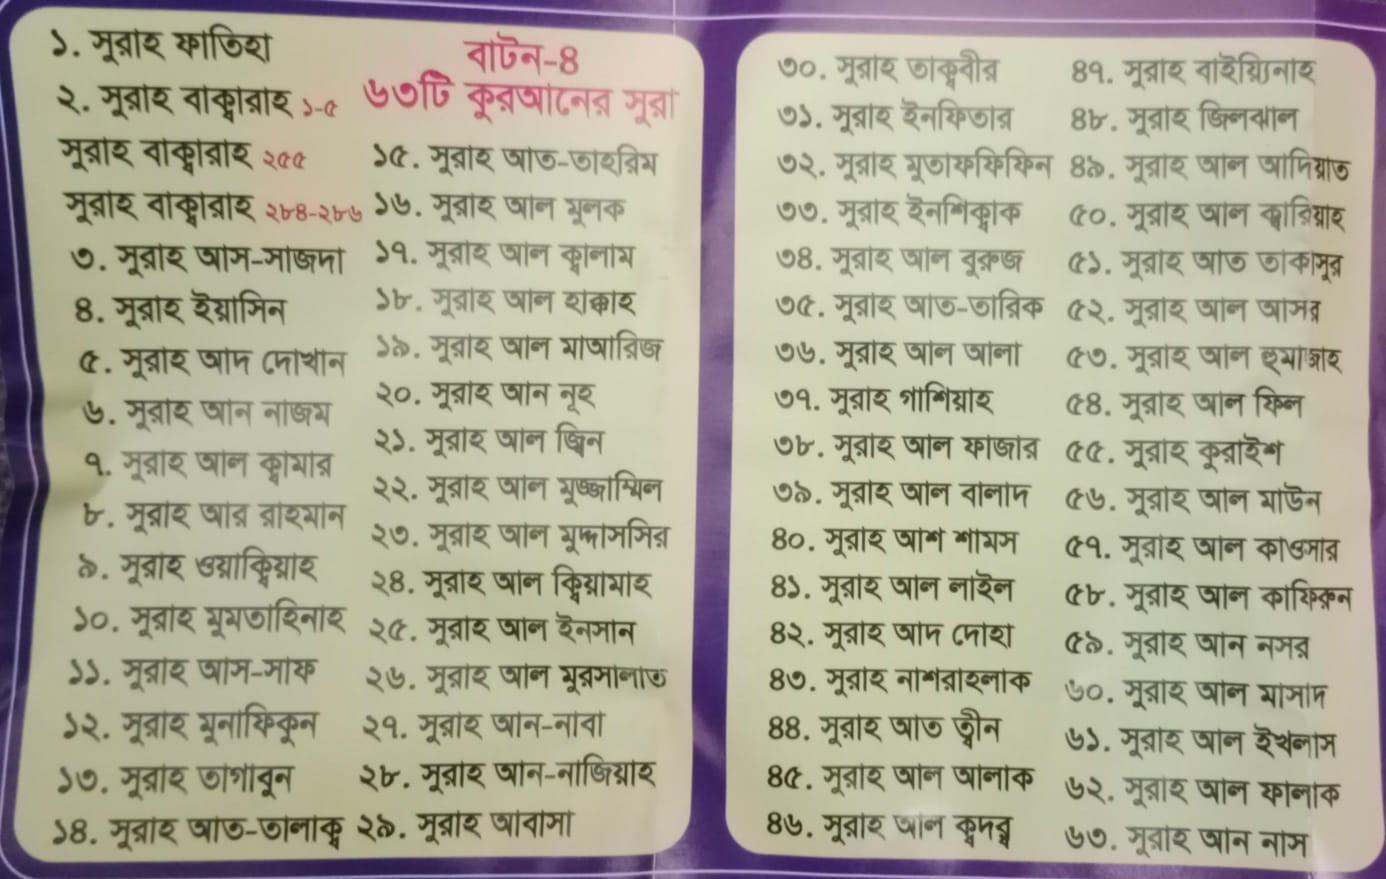 ১. সূরাহ ফাতিহা
২. সূরাহ বাক্বারাহ ১-৫
সূরাহ বাক্বারাহ ২৫৫
সূরাহ বাক্বারাহ ২৮৪-২৮৬
৩. সূরাহ আস-সাজদা
৪. সূরাহ ইয়াসিন
৫. সূরাহ আদ দোখান
৬. সূরাহ আন নাজম
৭. সূরাহ আল ক্বামার
৮. সূরাহ আর রাহমান
৯. সূরাহ ওয়াক্বিয়াহ
১০. সূরাহ মুমতাহিনাহ
১১. সূরাহ আস-সাফ
১২. সূরাহ মুনাফিকুন
১৩. সূরাহ তাগাবুন
১৪. সূরাহ আত-তালাক্ব
বাটন-৪
৬৩টি কুরআনের সূরা
১৫. সূরাহ আত-তাহরিম
১৬. সূরাহ আল মূলক
১৭. সূরাহ আল ক্বালাম
১৮. সূরাহ আল হাক্কাহ
১৯. সূরাহ আল মাআরিজ
২০. সূরাহ আন নূহ
২১. সূরাহ আল জ্বিন
২২. সূরাহ আল মুজ্জাম্মিল
২৩. সূরাহ আল মুদ্দাসসির
২৪. সূরাহ আল ক্বিয়ামাহ
২৫. সূরাহ আল ইনসান
২৬. সূরাহ আল মুরসালাত
২৭. সূরাহ আন-নাবা
২৮. সূরাহ আন-নাজিয়াহ
২৯. সূরাহ আবাসা
৩০. সূরাহ তাকুবীর
৩১. সূরাহ ইনফিতার
৩২. সূরাহ মুতাফফিফিন
৩৩. সূরাহ ইনশিক্বাক
৩৪. সূরাহ আল বুরুজ
৩৫. সূরাহ আত-তারিক
৩৬. সূরাহ আল আলা
৩৭. সূরাহ গাশিয়াহ
৩৮. সূরাহ আল ফাজার
৩৯. সূরাহ আল বালাদ
৪০. সূরাহ আশ শামস
৪১. সূরাহ আল লাইল
৪২. সূরাহ আদ দোহা
৪৩. সূরাহ নাশরাহলাক
৪৪. সূরাহ আত ত্বীন
৪৫. সূরাহ আল আলাক
৪৬. সূরাহ আল ক্বদর
৪৭. সূরাহ বাইয়্যিনাহ
৪৮. সূরাহ জিলঝাল
৪৯. সূরাহ আল আদিয়াত
৫০. সূরাহ আল ক্বারিয়াহ
৫১. সূরাহ আত তাকাসুর
৫২. সূরাহ আল আসর
৫৩. সূরাহ আল হুমাজাহ
৫৪. সূরাহ আল ফিল
৫৫. সূরাহ কুরাইশ
৫৬. সূরাহ আল মাউন
৫৭. সূরাহ আল কাওসার
৫৮. সূরাহ আল কাফিরুন
৫৯. সূরাহ আন নসর
৬০. সূরাহ আল মাসাদ
৬১. সূরাহ আল ইখলাস
৬২. সূরাহ আল ফালাক
৬৩. সূরাহ আন নাস